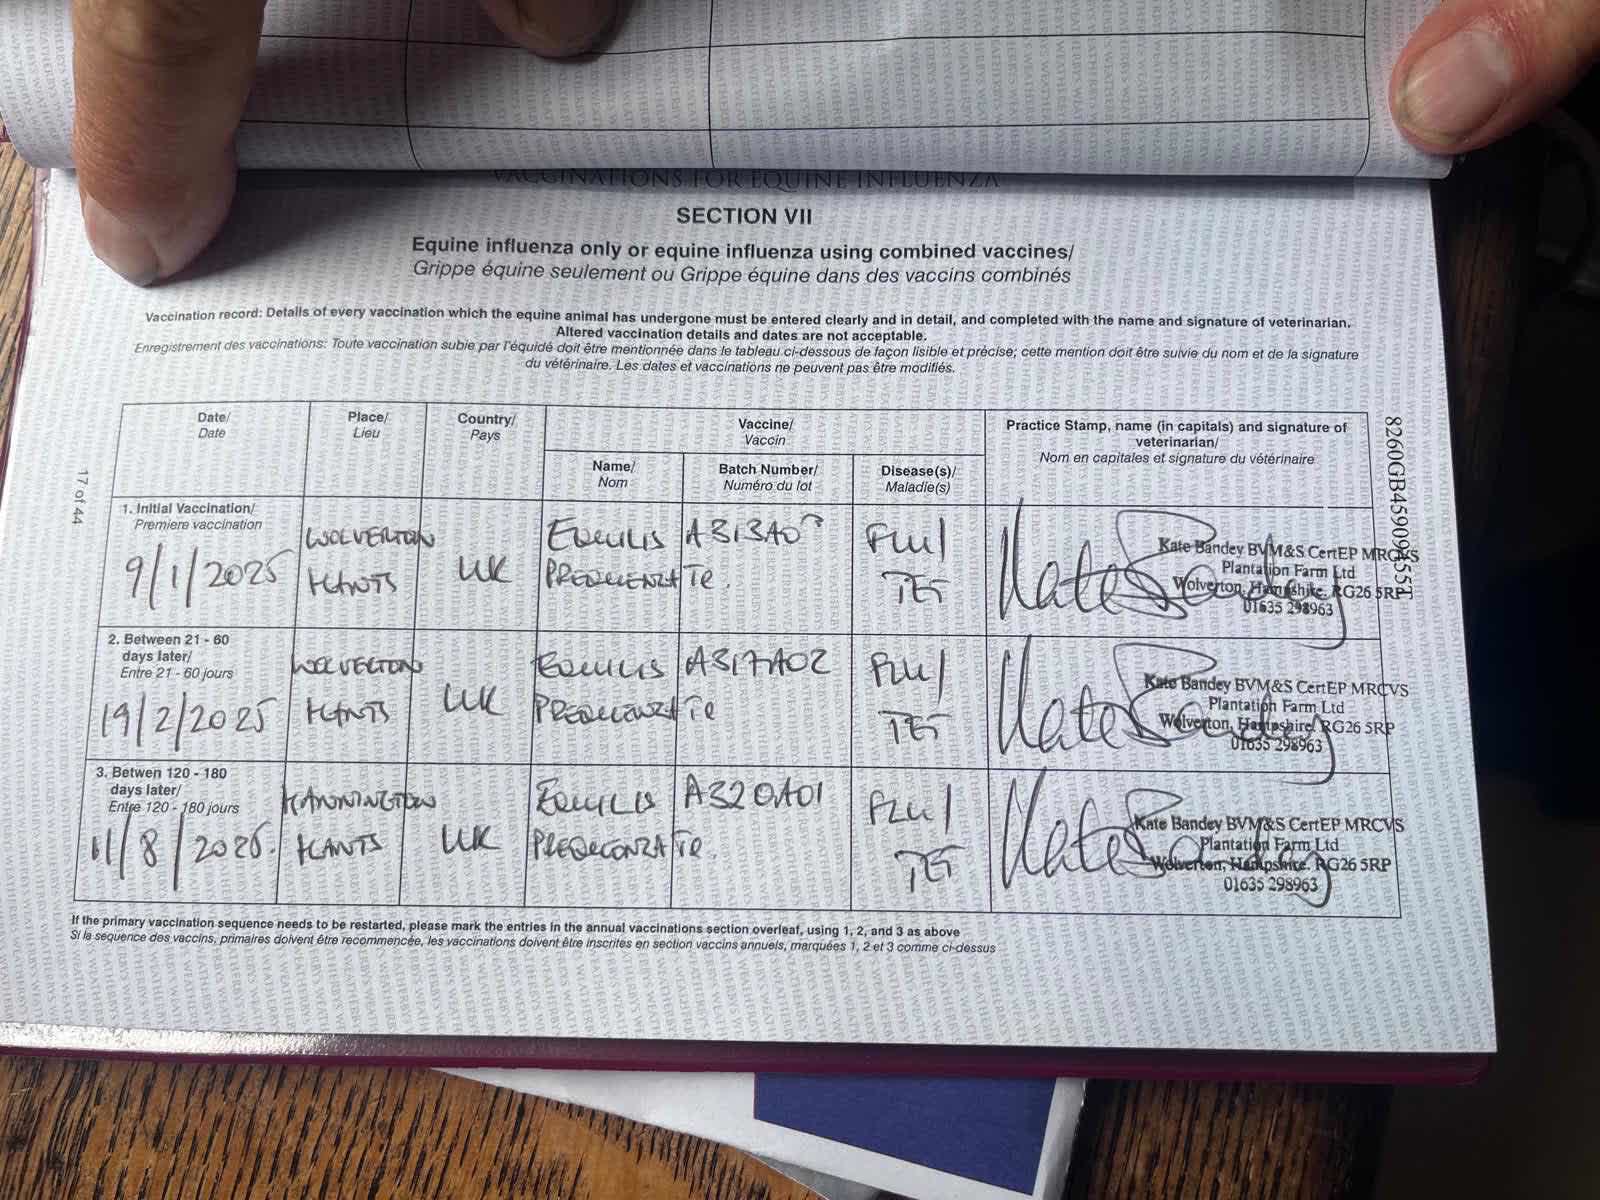 VACCINATIONS FOR EQUINE INFLUENZA
SECTION VII
Equine influenza only or equine influenza using combined vaccines/
Grippe équine seulement ou Grippe équine dans des vaccins combinés
Vaccination record: Details of every vaccination which the equine animal has undergone must be entered clearly and in detail, and completed with the name and signature of veterinarian.
Altered vaccination details and dates are not acceptable.
Enregistrement des vaccinations: Toute vaccination subie par l'équidé doit être mentionnée dans le tableau ci-dessous de façon lisible et précise; cette mention doit être suivie du nom et de la signature
du vétérinaire. Les dates et vaccinations ne peuvent pas être modifiés.
Date/
Date
Place/
Lieu
Country/
Pays
Vaccine/
Vaccin
Name/
Nom
Batch Number/
Numéro du lot
Disease(s)/
Maladie(s)
Practice Stamp, name (in capitals) and signature of
veterinarian/
Nom en capitales et signature du vétérinaire
1. Initial Vaccination/
Premiere vaccination
9/1/2025
WOLVERTON
HANTS
UK
EQUILIS
PREQUENZA TE.
A313A0
FLU/
TET
Kate Bandey BVM&S CertEP MRCVS
Plantation Farm Ltd
Wolverton, Hampshire. RG26 5RP
01635 298963
2. Between 21 - 60
days later/
Entre 21 - 60 jours
19/2/2025
WOLVERTON
HANTS
UK
EQUILIS
PREQUENZA TE
A317A02
FLU/
TET
Kate Bandey BVM&S CertEP MRCVS
Plantation Farm Ltd
Wolverton, Hampshire. RG26 5RP
01635 298963
3. Betwen 120 - 180
days later/
Entre 120 - 180 jours
11/8/2025.
HANNINGTON
HANTS
UK
EQUILIS
PREQUENZA TE.
A320A01
FLU/
TET
Kate Bandey BVM&S CertEP MRCVS
Plantation Farm Ltd
Wolverton, Hampshire. RG26 5RP
01635 298963
If the primary vaccination sequence needs to be restarted, please mark the entries in the annual vaccinations section overleaf, using 1, 2, and 3 as above
Si la sequence des vaccins, primaires doivent être recommencée, les vaccinations doivent être inscrites en section vaccins annuels, marquées 1, 2 et 3 comme ci-dessus
17 of 44